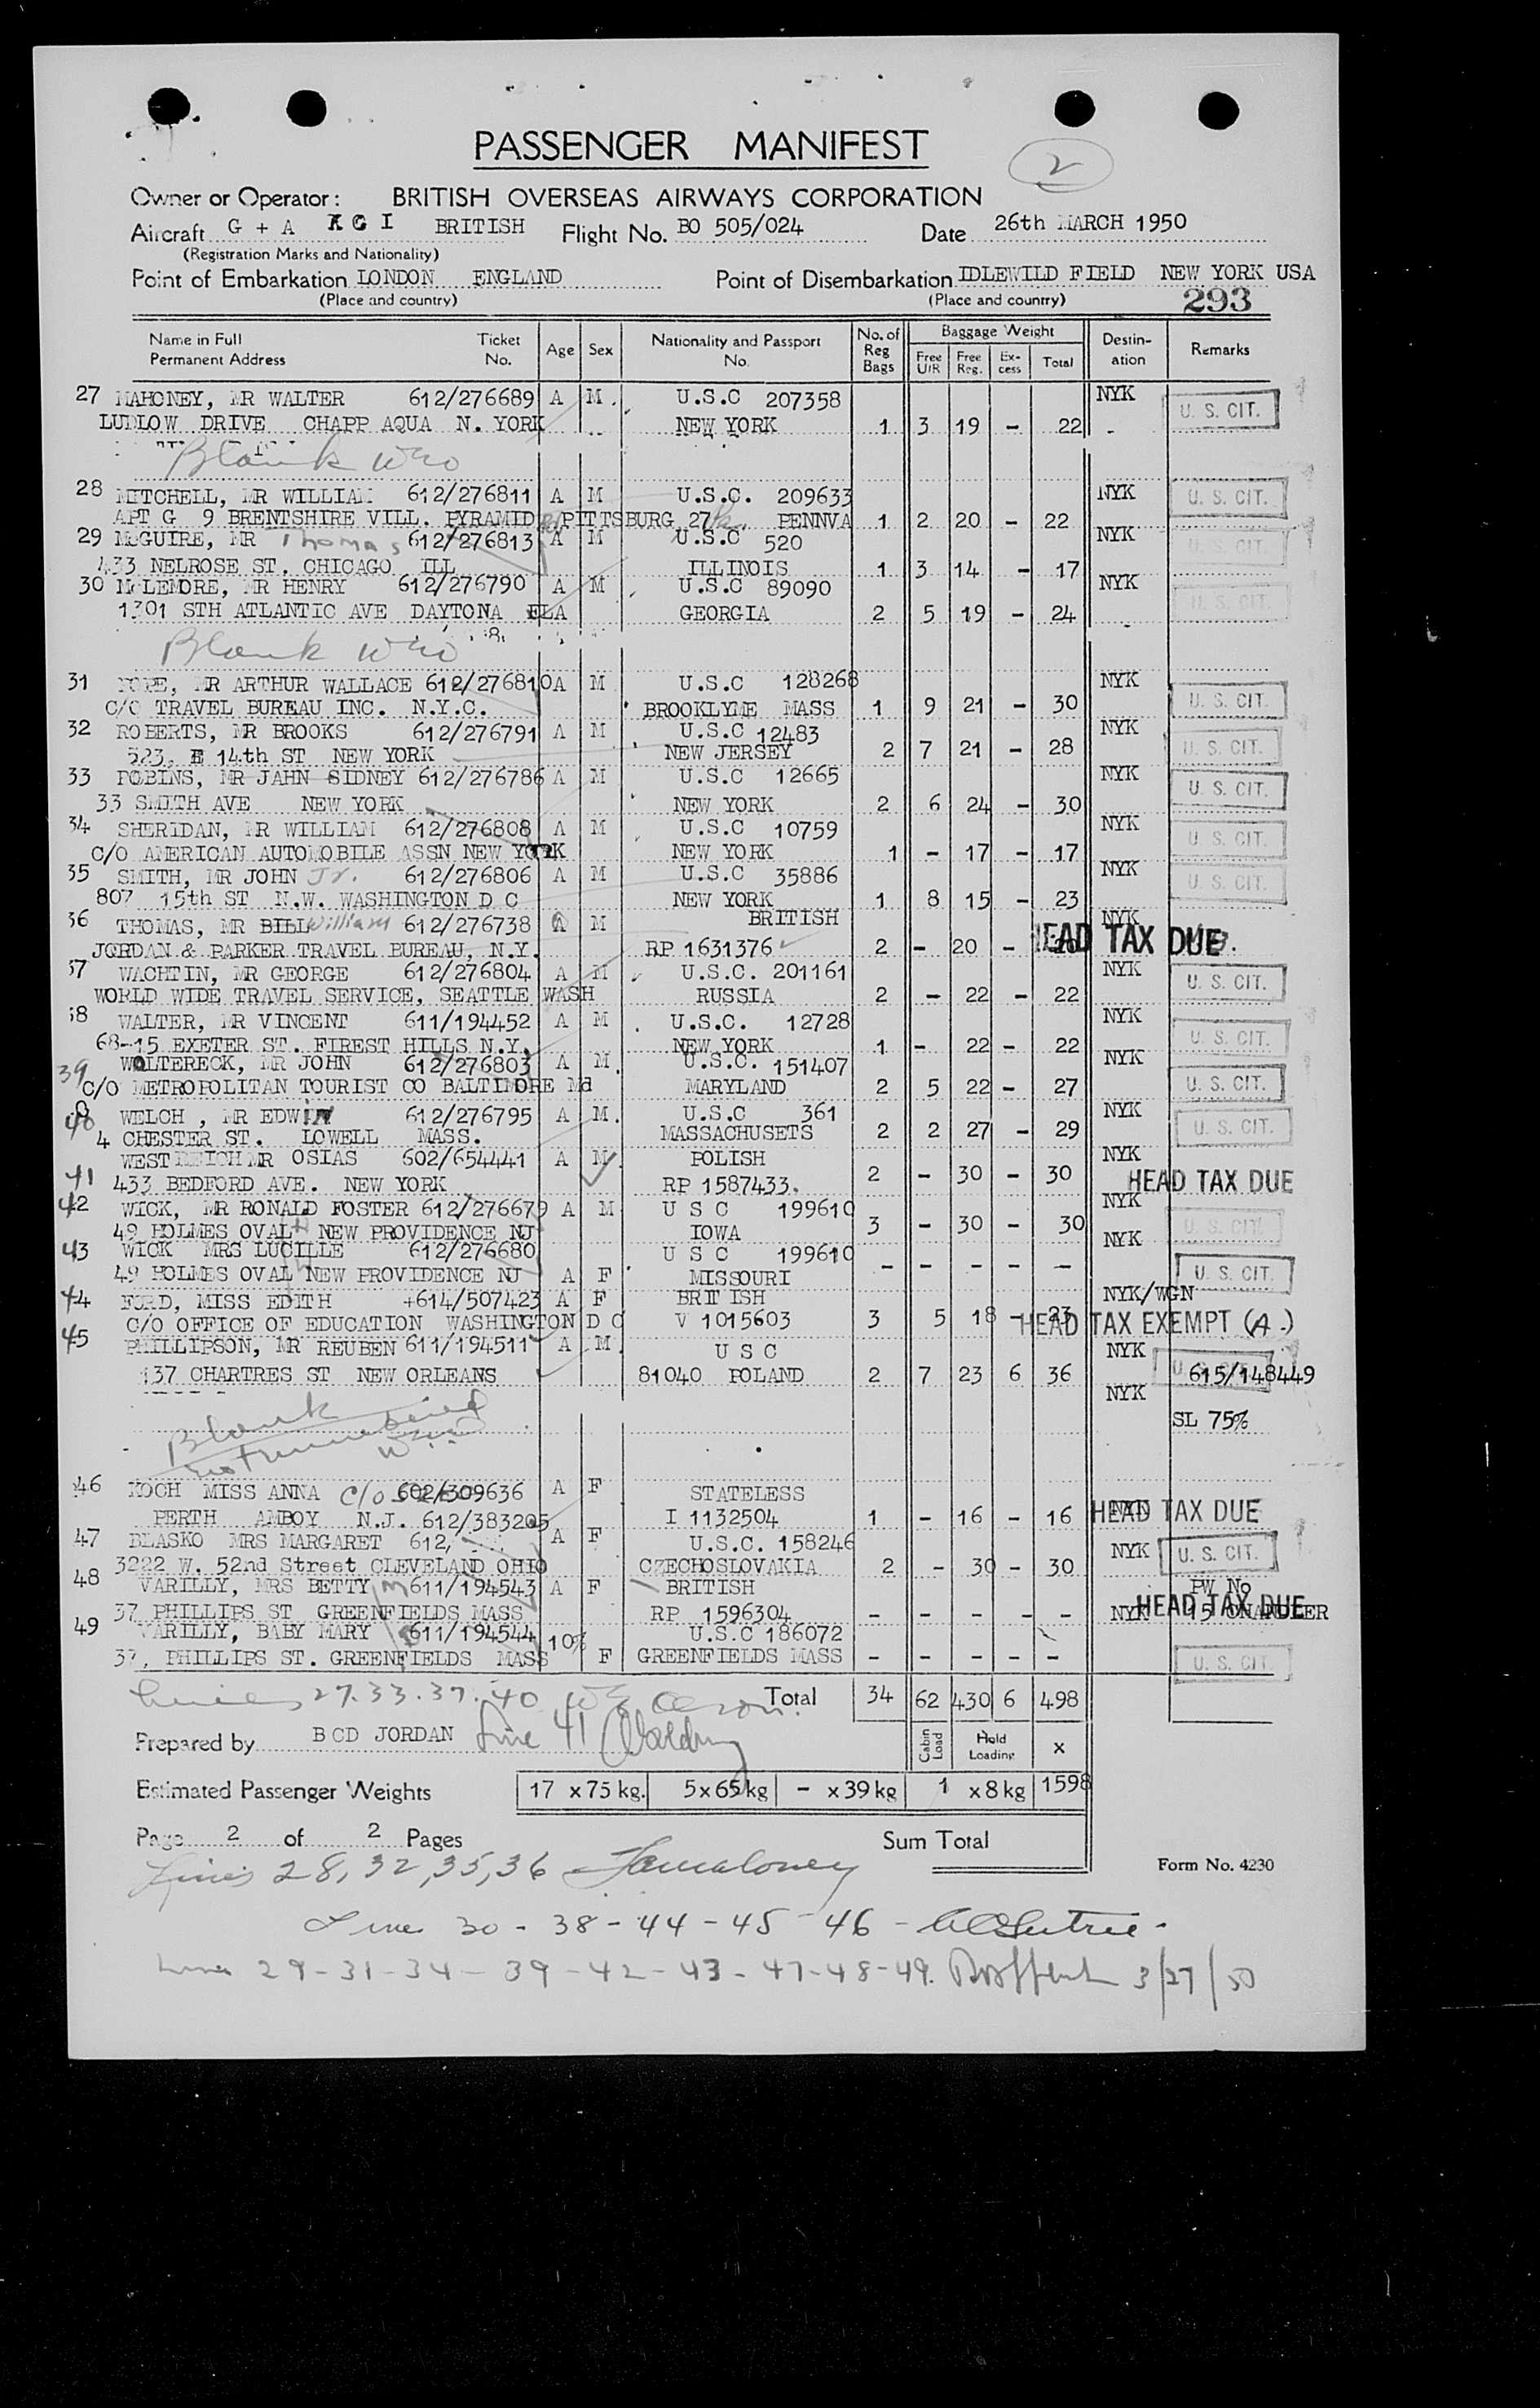 PASSENGER MANIFEST
2
Owner or Operator: BRITISH OVERSEAS AIRWAYS CORPORATION
Aircraft G + A K G I BRITISH Flight No. BO 505/024 Date 26th MARCH 1950
(Registration Marks and Nationality)
Point of Embarkation LONDON ENGLAND Point of Disembarkation IDLEWILD FIELD NEW YORK USA
(Place and country) (Place and country)
293
Name in Full Permanent Address Ticket No. Age Sex Nationality and Passport No. No. of Reg Bags Baggage Weight Free U/R Free Reg. Ex-cess Total Destin-ation Remarks
27 MAHONEY, MR WALTER 612/276689 A M U.S.C 207358 NYK U. S. CIT.
LUDLOW DRIVE CHAPP AQUA N. YORK NEW YORK 1 3 19 - 22 -
Blank
28 MITCHELL, MR WILLIAM 612/276811 A M U.S.C. 209633 NYK U. S. CIT.
APT G 9 BRENTSHIRE VILL. PYRAMID PITTSBURG 27 PENNVA 1 2 20 - 22
29 McGUIRE, MR Thomas 612/276813 A M U.S.C 520 NYK U. S. CIT.
433 NELROSE ST. CHICAGO ILL ILLINOIS 1 3 14 - 17
30 McLEMORE, MR HENRY 612/276790 A M U.S.C 89090 NYK U. S. CIT.
1301 STH ATLANTIC AVE DAYTONA FLA GEORGIA 2 5 19 - 24
Blank
31 POPE, MR ARTHUR WALLACE 612/276810 A M U.S.C 128268 NYK
C/O TRAVEL BUREAU INC. N.Y.C. BROOKLYNE MASS 1 9 21 - 30 U. S. CIT.
32 ROBERTS, MR BROOKS 612/276791 A M U.S.C 12483 NYK
523, E 14th ST NEW YORK NEW JERSEY 2 7 21 - 28 U. S. CIT.
33 ROBINS, MR JAHN SIDNEY 612/276786 A M U.S.C 12665 NYK U. S. CIT.
33 SMITH AVE NEW YORK NEW YORK 2 6 24 - 30
34 SHERIDAN, MR WILLIAM 612/276808 A M U.S.C 10759 NYK U. S. CIT.
C/O AMERICAN AUTOMOBILE ASSN NEW YORK NEW YORK 1 - 17 - 17
35 SMITH, MR JOHN Jr. 612/276806 A M U.S.C 35886 NYK U. S. CIT.
807 15th ST N.W. WASHINGTON D C NEW YORK 1 8 15 - 23
36 THOMAS, MR BILL William 612/276738 A M BRITISH NYK
JORDAN & PARKER TRAVEL BUREAU, N.Y. RP 1631376 2 - 20 - HEAD TAX DUE
37 WACHTIN, MR GEORGE 612/276804 A M U.S.C. 201161 NYK U. S. CIT.
WORLD WIDE TRAVEL SERVICE, SEATTLE WASH RUSSIA 2 - 22 - 22
38 WALTER, MR VINCENT 611/194452 A M U.S.C. 12728 NYK
68-15 EXETER ST. FIREST HILLS N.Y. NEW YORK 1 - 22 - 22 U. S. CIT.
39 WOLTERECK, MR JOHN 612/276803 A M U.S.C. 151407 NYK
C/O METROPOLITAN TOURIST CO BALTIMORE Md MARYLAND 2 5 22 - 27 U. S. CIT.
40 WELCH , MR EDWIN 612/276795 A M U.S.C 361 NYK U. S. CIT.
4 CHESTER ST. LOWELL MASS. MASSACHUSETS 2 2 27 - 29
41 WESTREICH MR OSIAS 602/654441 A M POLISH NYK
433 BEDFORD AVE. NEW YORK RP 1587433. 2 - 30 - 30 HEAD TAX DUE
42 WICK, MR RONALD FOSTER 612/276679 A M U S C 199610 NYK
49 HOLMES OVAL NEW PROVIDENCE NJ IOWA 3 - 30 - 30 U. S. CIT.
43 WICK MRS LUCILLE 612/276680 U S C 199610 NYK
49 HOLMES OVAL NEW PROVIDENCE NJ A F MISSOURI - - - - - U. S. CIT.
44 FORD, MISS EDITH +614/507423 A F BRITISH NYK/WGN
C/O OFFICE OF EDUCATION WASHINGTON D C V 1015603 3 5 18 - 23 HEAD TAX EXEMPT (A.)
45 PHILLIPSON, MR REUBEN 611/194511 A M U S C NYK U. S. CIT.
437 CHARTRES ST NEW ORLEANS 81040 POLAND 2 7 23 6 36 615/148449
NYK
SL 75%
Blank
46 KOCH MISS ANNA C/o 602/309636 A F STATELESS
PERTH AMBOY N.J. 612/383205 I 1132504 1 - 16 - 16 NYK HEAD TAX DUE
47 BLASKO MRS MARGARET 612, A F U.S.C. 158246 NYK U. S. CIT.
3222 W. 52nd Street CLEVELAND OHIO CZECHOSLOVAKIA 2 - 30 - 30
48 VARILLY, MRS BETTY M 611/194543 A F BRITISH PW No
37 PHILLIPS ST GREENFIELDS MASS RP 1596304 - - - - - NYK HEAD TAX DUE
49 VARILLY, BABY MARY 611/194544 10% U.S.C 186072
37, PHILLIPS ST. GREENFIELDS MASS F GREENFIELDS MASS - - - - - U. S. CIT.
Lines 27.33.37.40 Total 34 62 430 6 498
Prepared by BCD JORDAN Line 41 Cabin Load Hold Loading X
Estimated Passenger Weights 17 x 75 kg. 5 x 65 kg - x 39 kg 1 x 8 kg 1598
Page 2 of 2 Pages Sum Total
Lines 28, 32, 35, 36
Form No. 4230
Line 30 - 38 - 44 - 45 - 46 -
Lines 29-31-34-39-42-43-47-48-49. 3/27/50